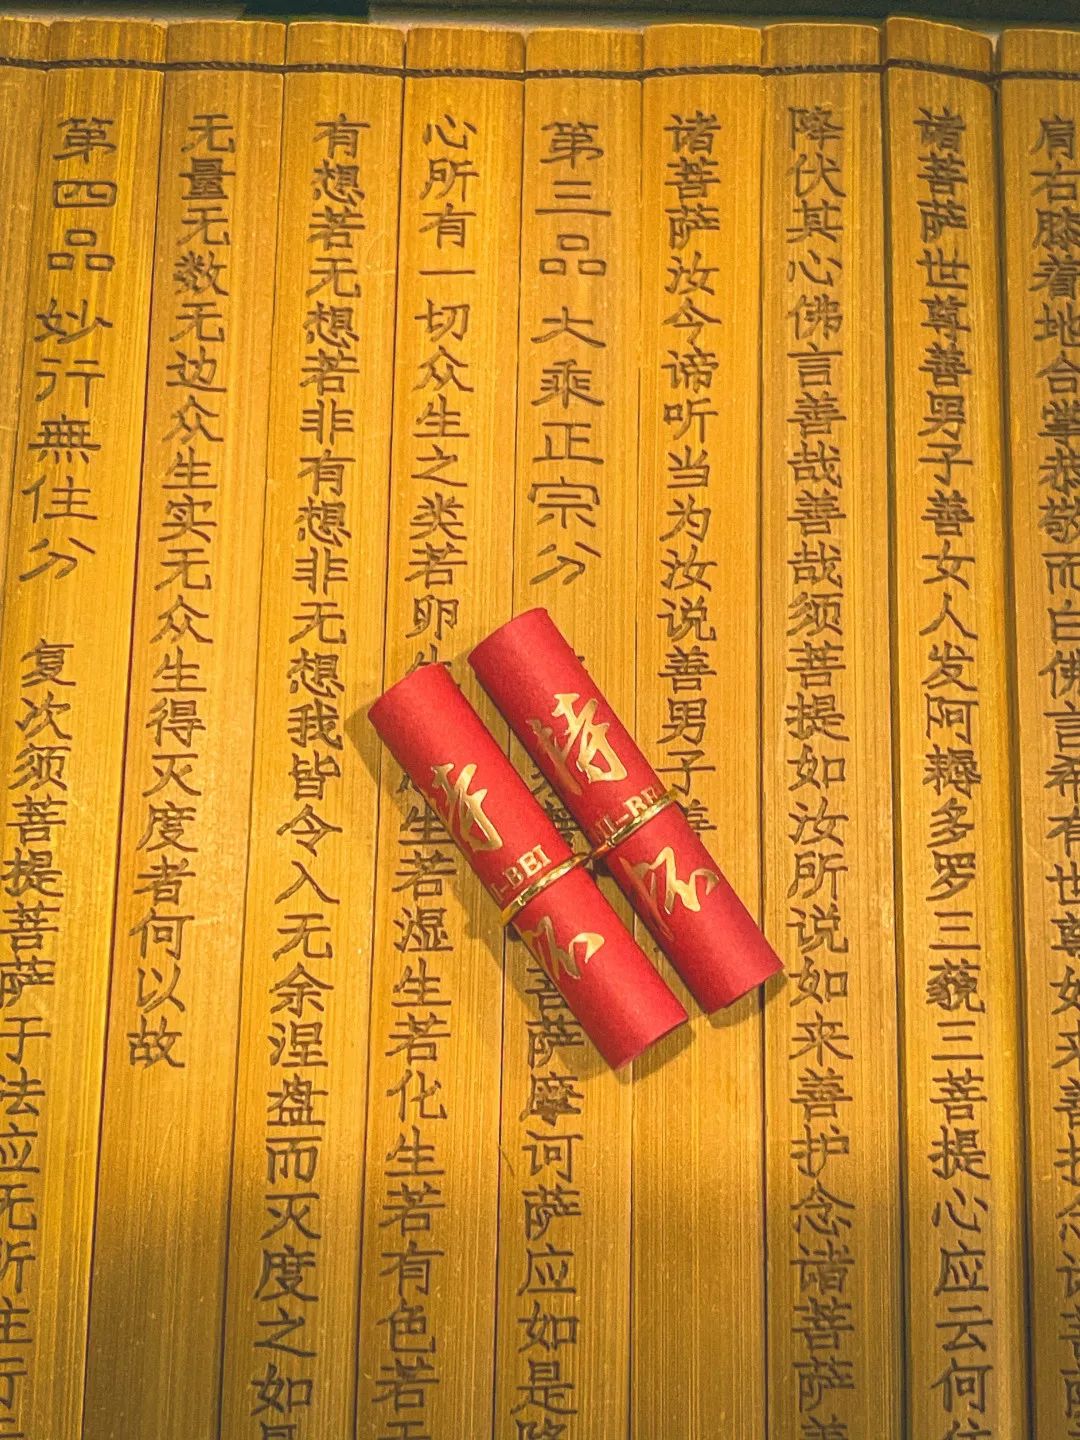 肩右膝着地合掌恭敬而白佛言希有世尊如来善护念诸菩
诸菩萨世尊善男子善女人发阿耨多罗三藐三菩提心应云何住
降伏其心佛言善哉善哉须菩提如汝所说如来善护念诸菩萨善
诸菩萨汝今谛听当为汝说善男子善
第三品 大乘正宗分
菩萨摩诃萨应如是降
心所有一切众生之类若卵生
生若湿生若化生若有色若无
有想若无想若非有想非无想我皆令入无余涅盘而灭度之如是
无量无数无边众生实无众生得灭度者何以故
第四品 妙行無住分 复次须菩提菩萨于法应无所住行
持怀
-BEI
持怀
UI-BE